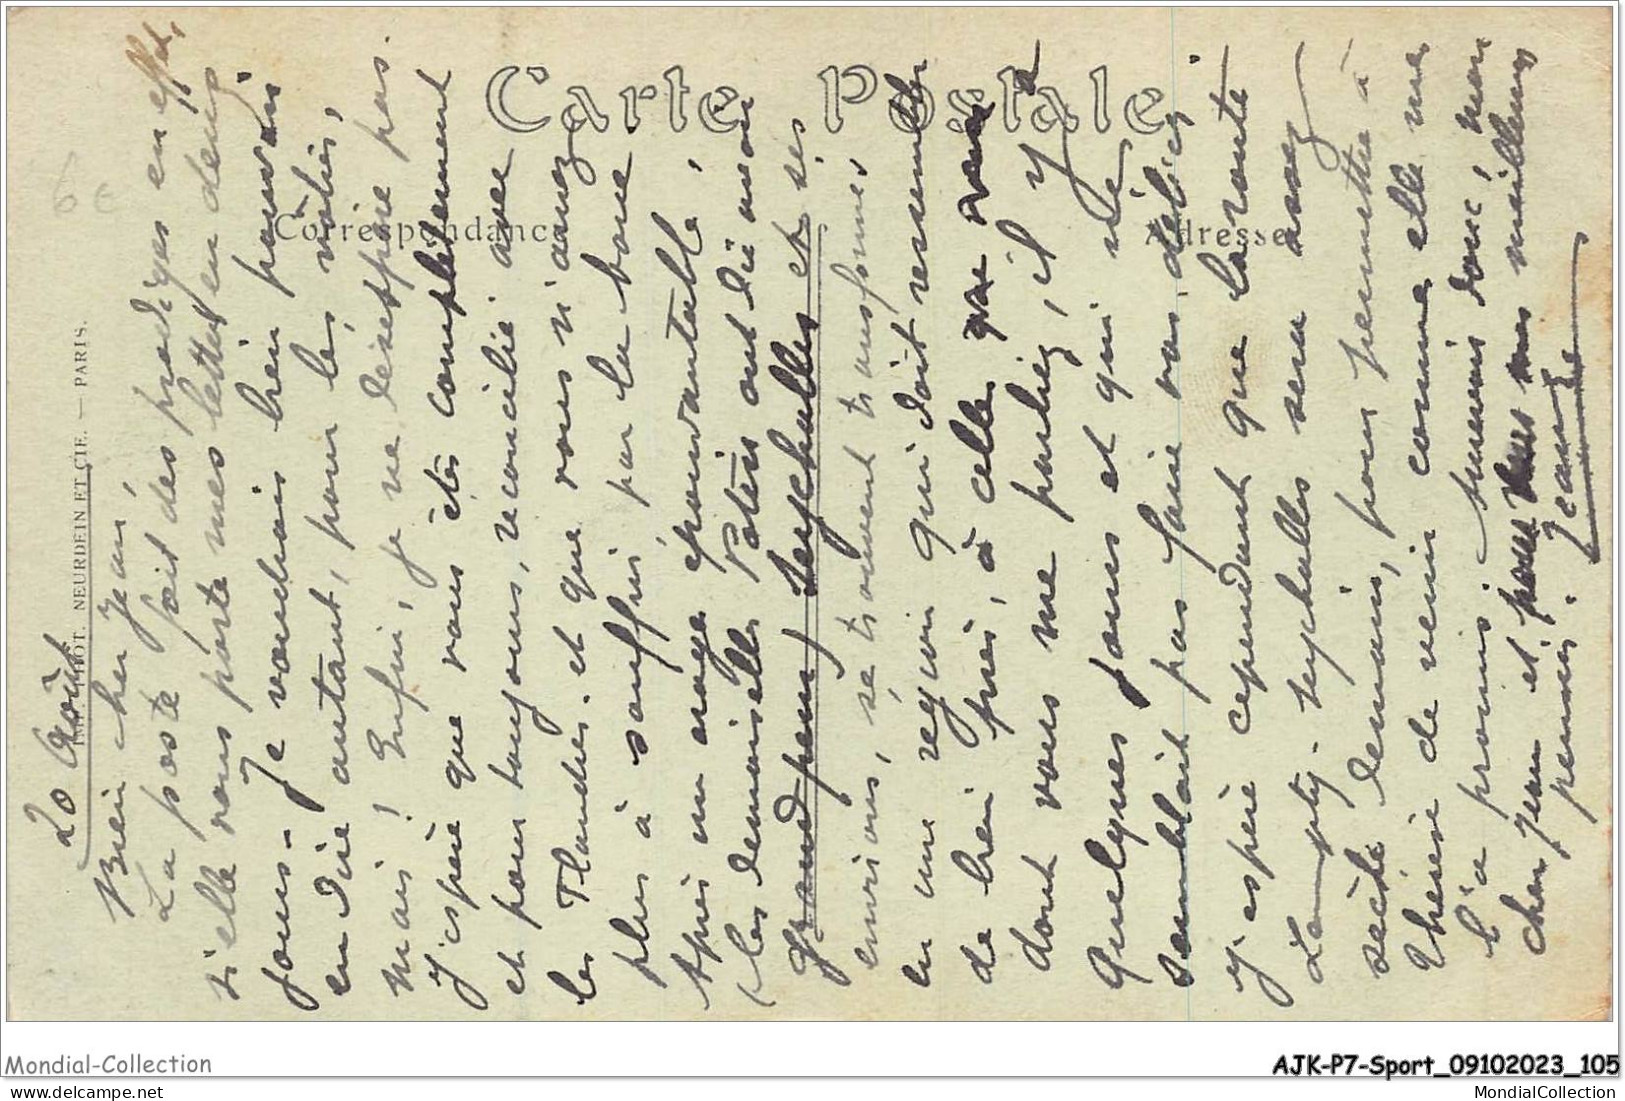 Carte Postale
Correspondance
Adresse
IMP. PHOT. NEURDEIN ET CIE. — PARIS.
6 €
20 Août
Bien cher Jean,
La poste fait des prodiges en effet,
si elle vous porte mes lettres en deux
jours - Je voudrais bien pouvoir
en dire autant, pour les vôtres,
mais ! Enfin, je ne désespère pas.
J'espère que vous êtes complètement
et pour toujours, réconcilié avec
les Flandres. et que vous n'aurez
plus à souffrir, par la boue.
Après un orage épouvantable,
(les demoiselles Potin ont dû avoir
grand peur) Serychalles et ses
environs, se trouvent transformés
en une région qui doit ressembler
de bien près, à celle que vous
dont vous me parliez, il y a
quelques jours et qui ne
semblait pas faire vos délices
J'espère cependant que la route
Lempty - Seychalles sera assez
sèche demain, pour permettre à
Thérèse de venir comme elle me
l'a promis. A demain donc, mon
cher Jean et pour vous mes meilleures
pensées. Jeanne
Mondial-Collection
AJK-P7-Sport_09102023_105
MondialCollection